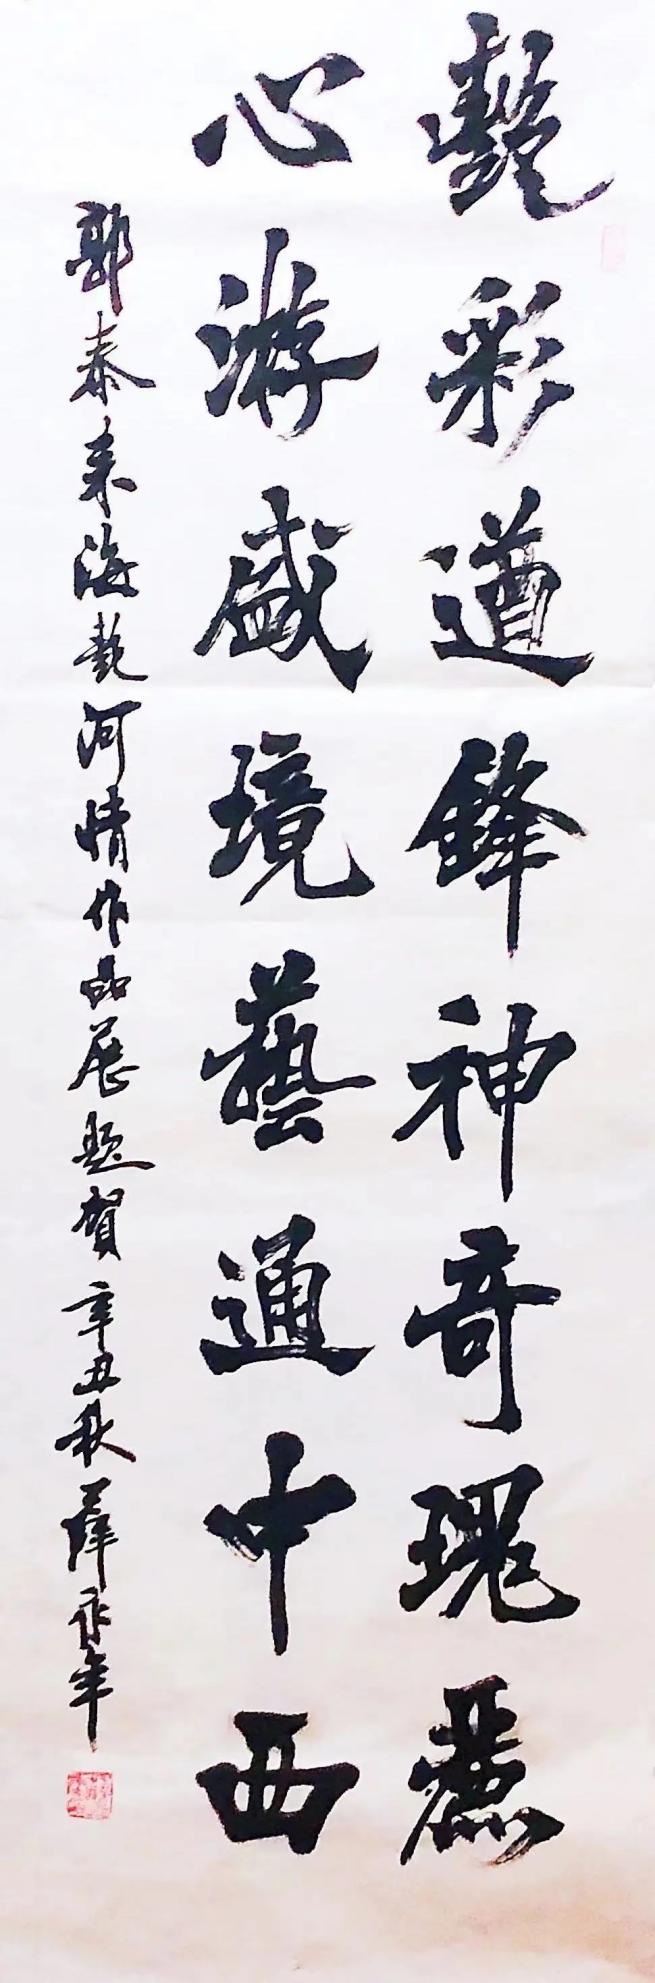 彩遒鋒神奇瑰麗
心游盛境藝通中西
郭泰来海藝河情作品展題賀辛丑秋薛永年